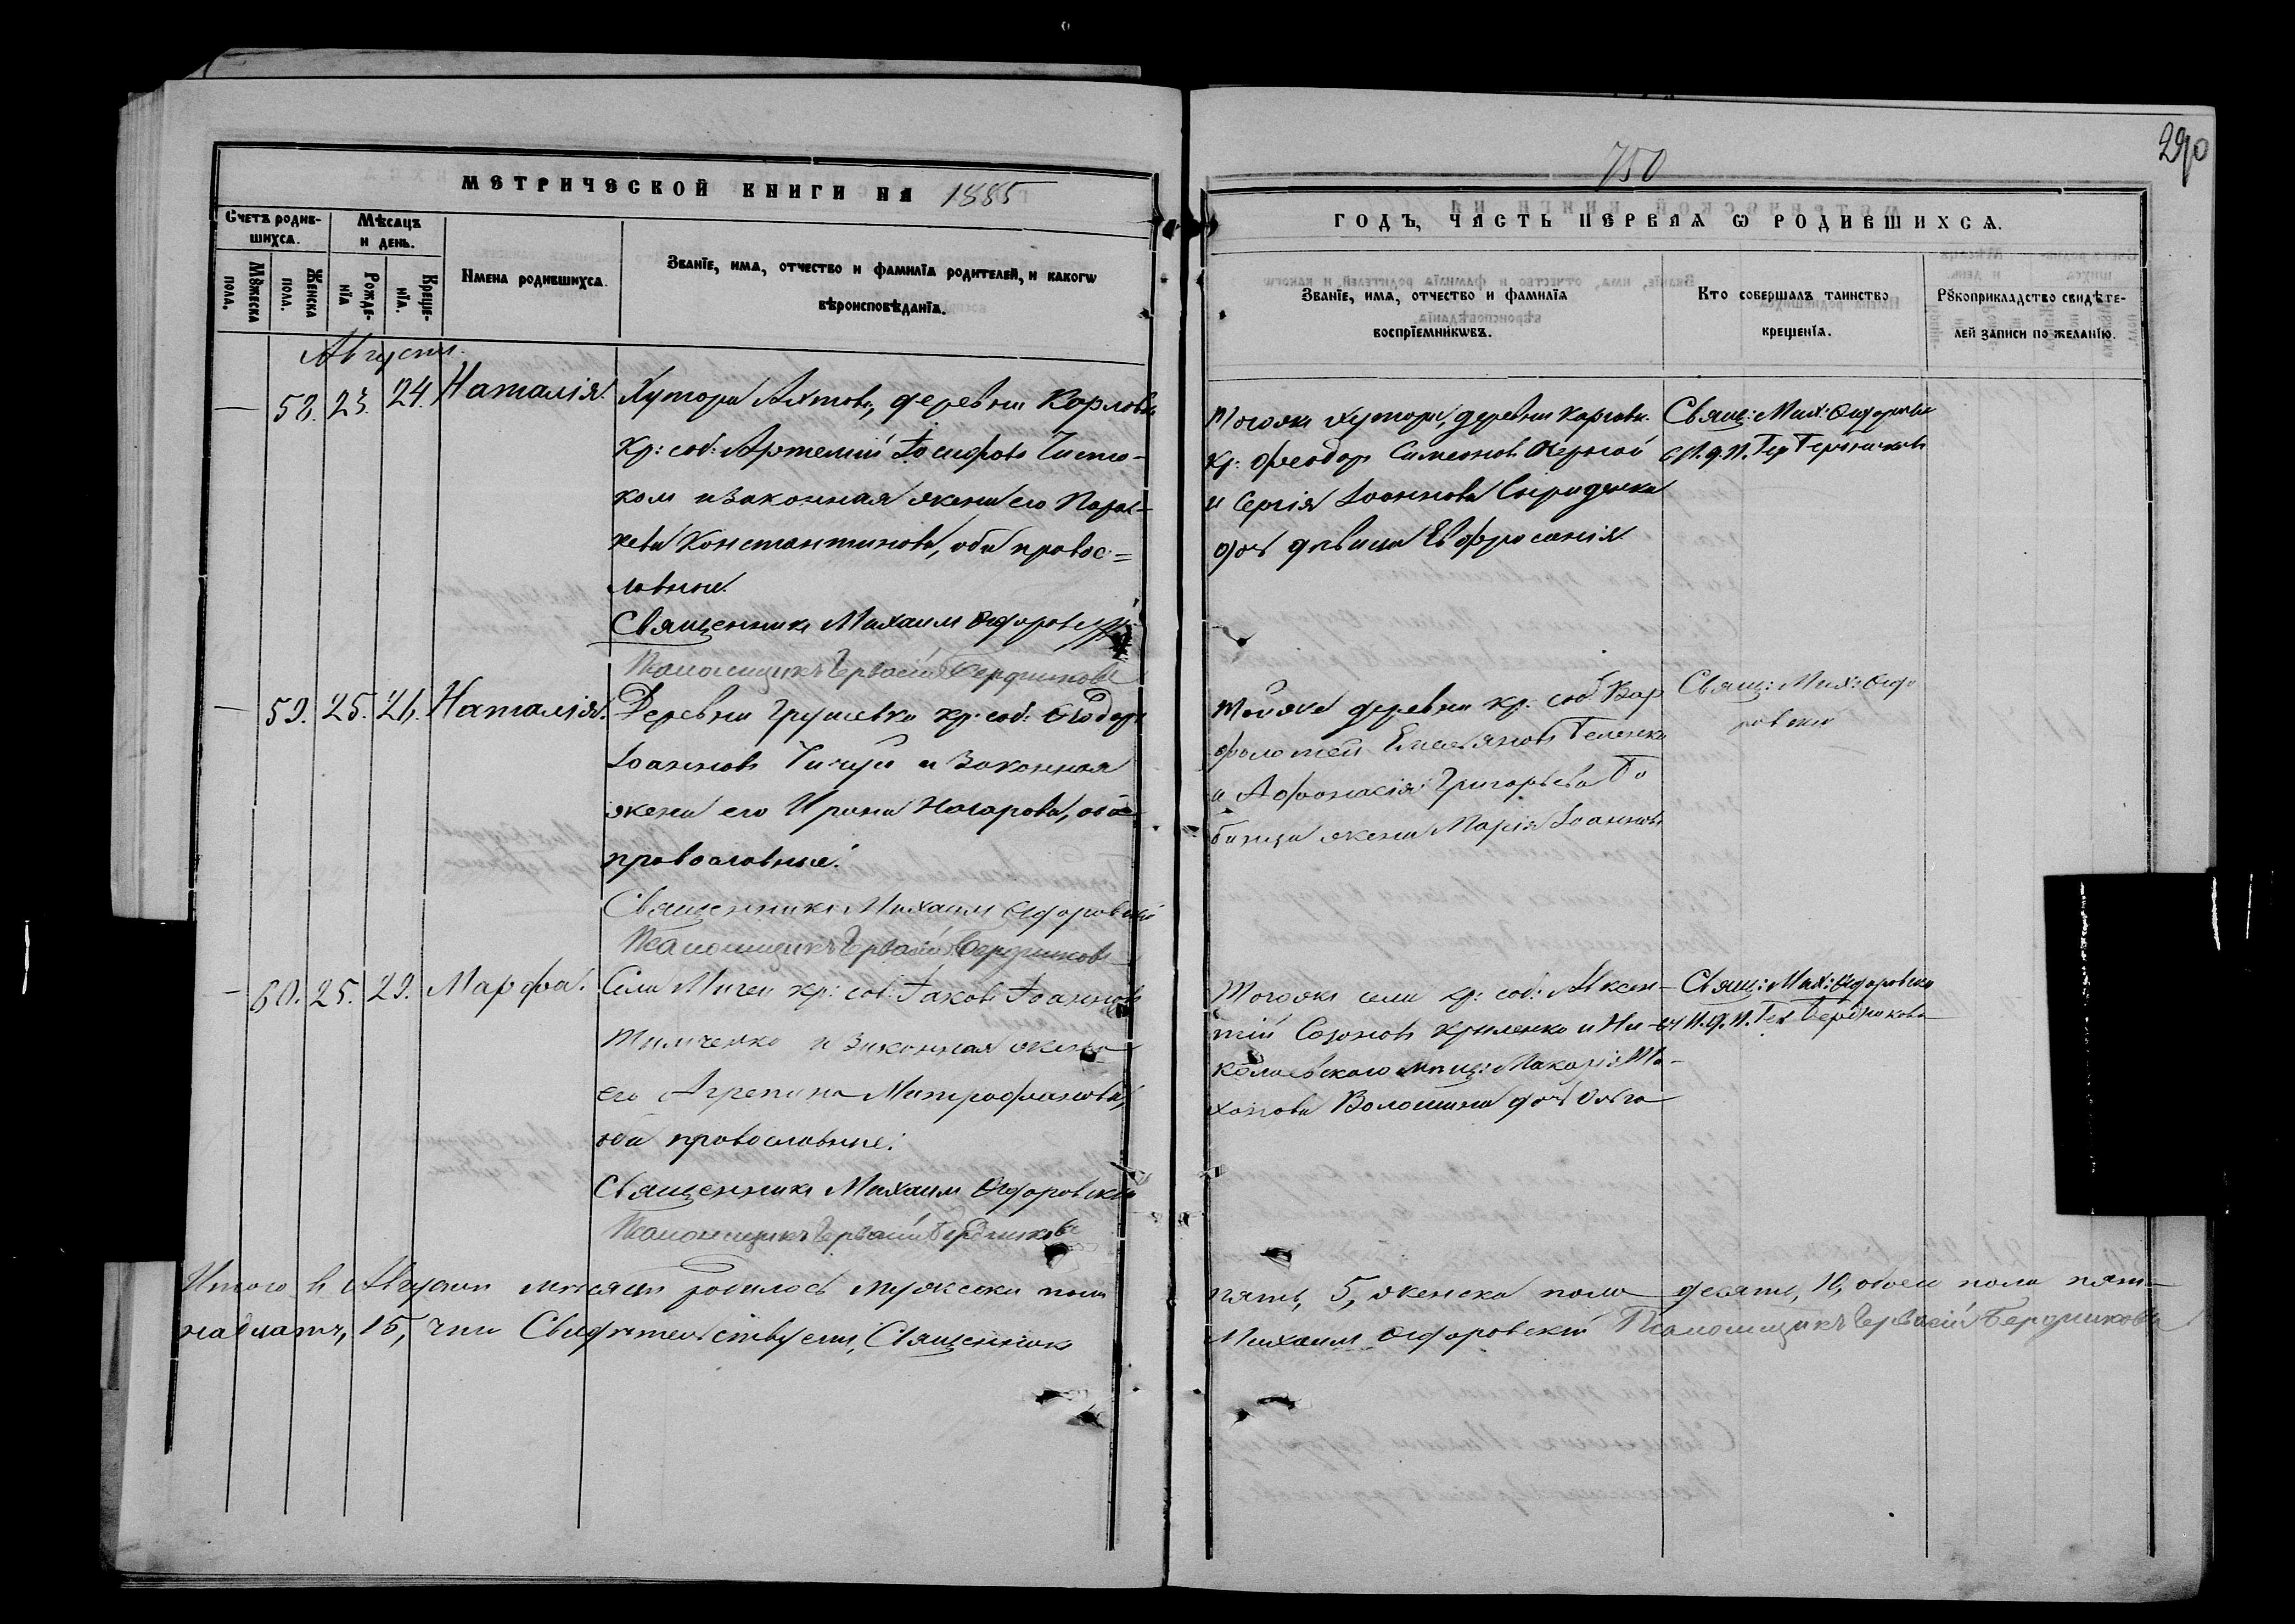 290
750
МЕТРИЧЕСКОЙ КНИГИ НА 1885
ГОДЪ, ЧАСТЬ ПЕРВАЯ Ѡ РОДИВШИХСѦ.
Счетъ родив-
шихсѧ.
Мѣсацъ
и день.
Мꙋжеска
пола.
Женска
пола.
Рожде-
нїѧ
Креще-
нїѧ.
Имена родившихсѧ.
Званїе, имѧ, отчество и фамилїѧ родителей, и какогѡ
вѣроисповѣданїѧ.
Званїе, имѧ, отчество и фамилїѧ
воспрїемникѡвъ.
Кто совершалъ таинство
крещенїѧ.
Рꙋкоприкладство свидѣте-
лей записи по желанїю.
Августъ.
— 58. 23. 24. Наталія.
Хутора Ахтова, деревни Карловки
кр: соб: Артемій Іосифовъ Чисто-
колъ и законная жена его Парас-
кева Константинова, оба правос-
лавные.
Священникъ Михаилъ
Псаломщикъ Гервасій Бердниковъ
Тогоже хутора, деревни Карловки
кр: Феодоръ Симеоновъ
и Сергія Іоаннова Спириденка
дочь девица Евфросинія
Свящ: Мих:
с И. д. П. Гер Бердниковъ
— 59. 25. 26. Наталія.
Деревни Грушевки кр: соб: Ѳеодоръ
Іоанновъ и законная
жена его Ирина Назарова, оба
православные.
Священникъ Михаилъ
Псаломщикъ Гервасій Бердниковъ
Тойже деревни кр: соб Вар
фоломей Емельяновъ
и Афонасія Григорьева
жена Марія Іоаннова
Свящ: Мих:
— 60. 25. 29. Марфа.
Села Мигеи кр: соб: Іаковъ Іоанновъ
Тимченко и законная жена
его Агрепина Митрофанова,
оба православные.
Священникъ Михаилъ
Псаломщикъ Гервасій Бердниковъ
Тогоже села кр: соб: Авксен-
тій Созоновъ Криленко и Ни-
колаевскаго мещ: Макарія
Волошина дочь Ольга
Свящ: Мих:
съ И. д. П. Гер Бердниковъ
Итого въ Августъ месяцъ родилось мужеска пола пять, 5, женска пола десять, 10, обоего пола пят-
надцать, 15, что Свидетельствуемъ, Священникъ Михаилъ Псаломщикъ Гервасій Бердниковъ